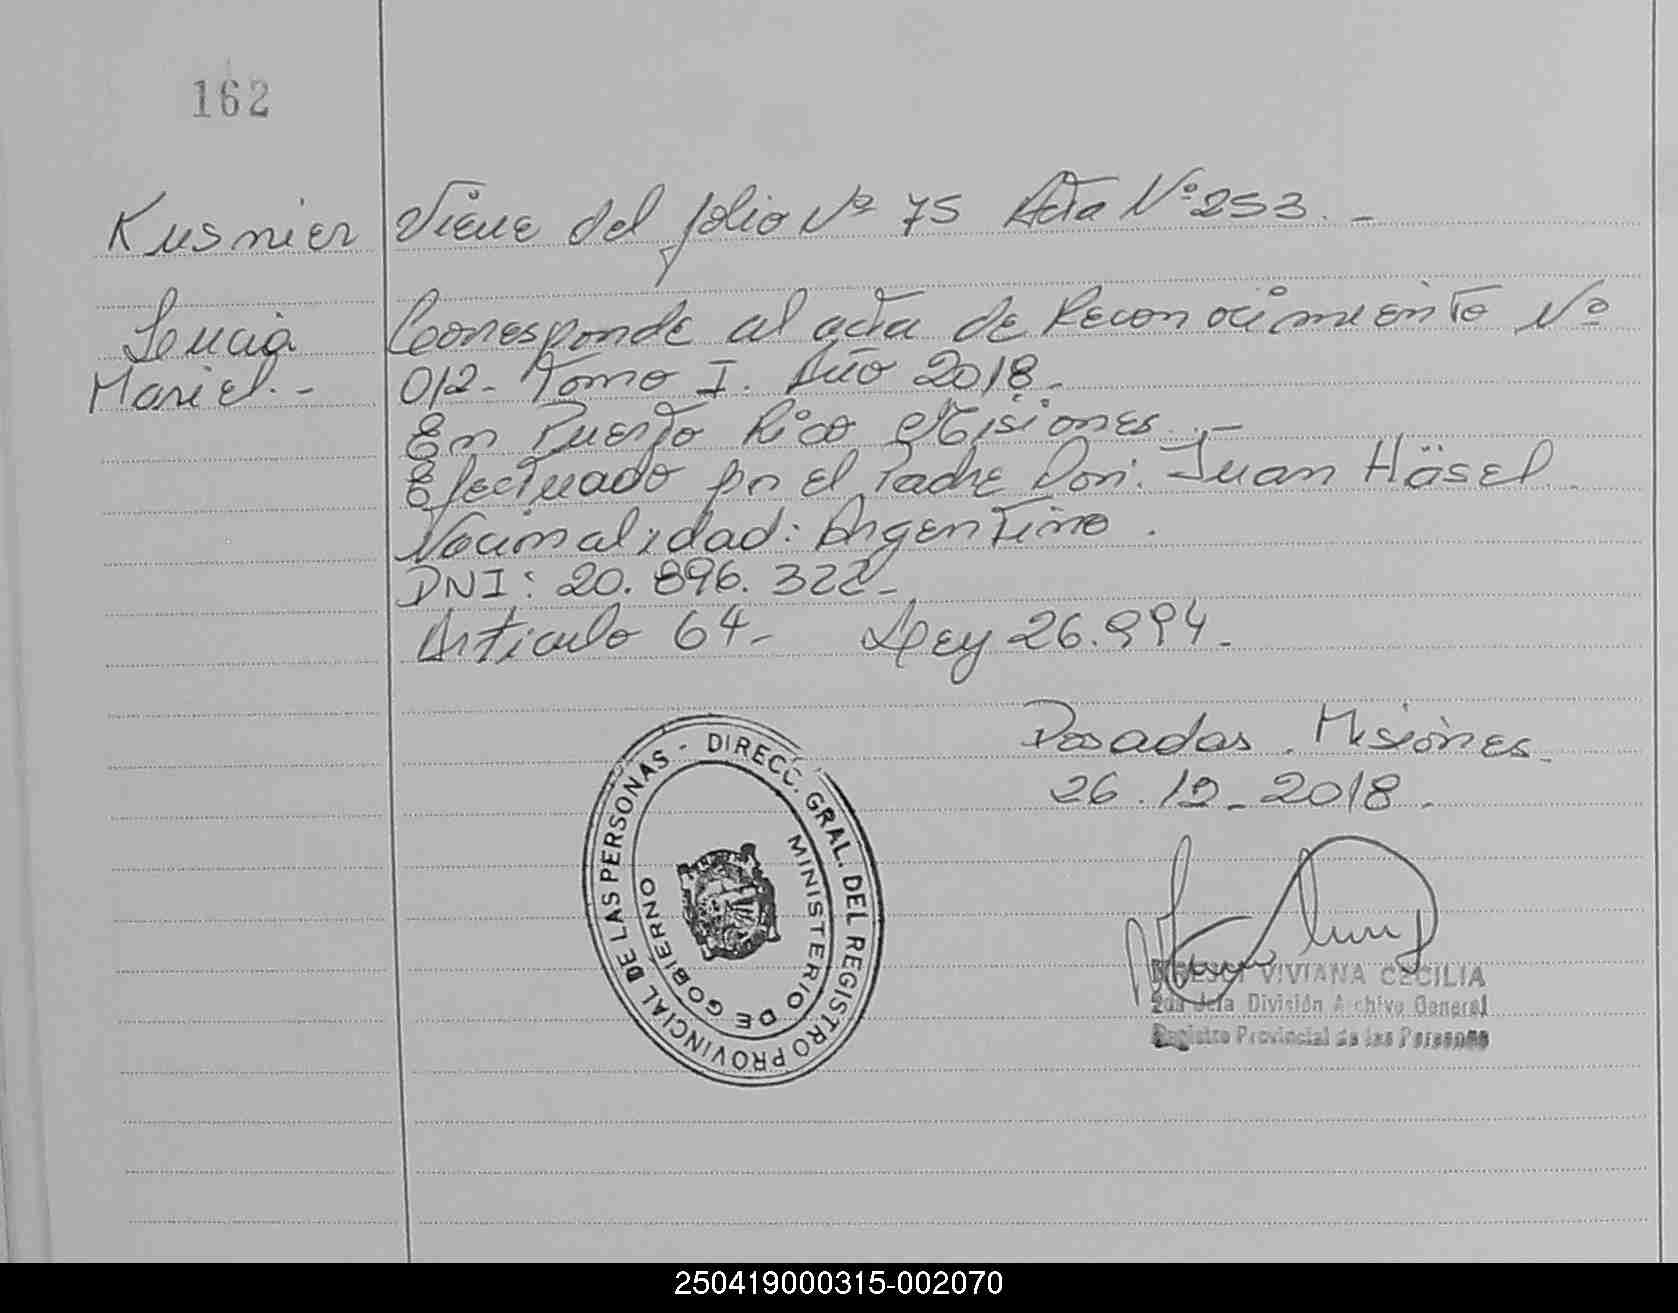 162
Kusnier
Lucia
Mariel.-
Viene del folio Nº 75 Acta Nº 253.-
Corresponde al acta de Reconocimiento Nº
012- Tomo I. Año 2018.
En Puerto Rico Misiones.
Efectuado por el Padre Don: Juan Häsel.
Nacionalidad: Argentino.
DNI: 20.896.322-
Articulo 64- Ley 26.994.
Posadas. Misiones.
26.12-2018.
DIRECC. GRAL. DEL REGISTRO PROVINCIAL DE LAS PERSONAS -
MINISTERIO DE GOBIERNO
VIVIANA CECILIA
División Archivo General
Registro Provincial de las Personas
250419000315-002070